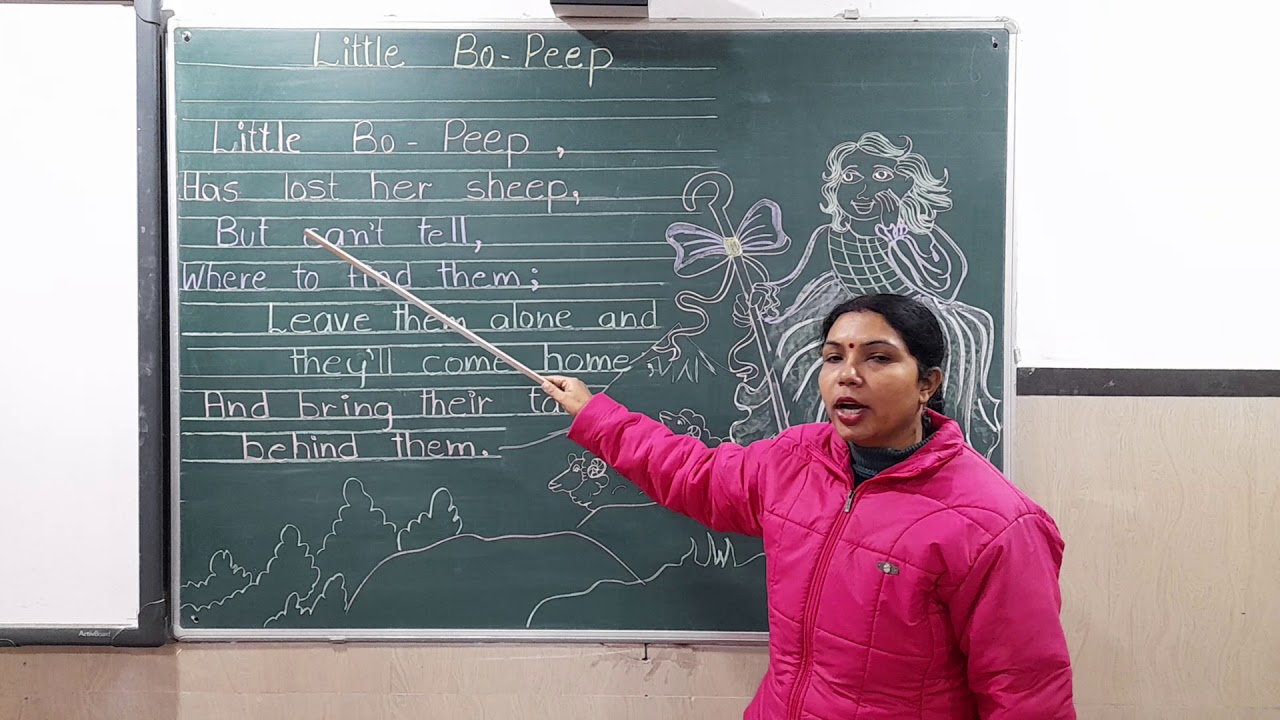 Little Bo-Peep
Little Bo-Peep,
Has lost her sheep,
But can't tell,
Where to find them;
Leave them alone and
they'll come home,
And bring their
behind them.
ActivBoard